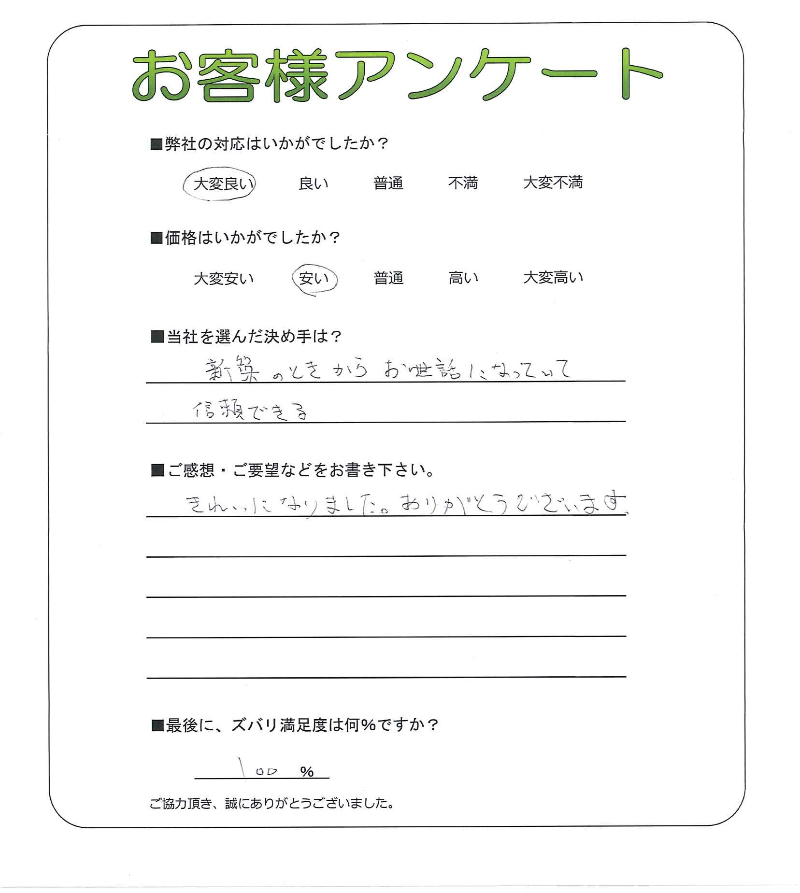 お客様アンケート
■弊社の対応はいかがでしたか?
大変良い 良い 普通 不満 大変不満
■価格はいかがでしたか?
大変安い 安い 普通 高い 大変高い
■当社を選んだ決め手は?
新築のときからお世話になっていて
信頼できる
■ご感想・ご要望などをお書き下さい。
きれいになりました。ありがとうございます
■最後に、ズバリ満足度は何%ですか?
100 %
ご協力頂き、誠にありがとうございました。